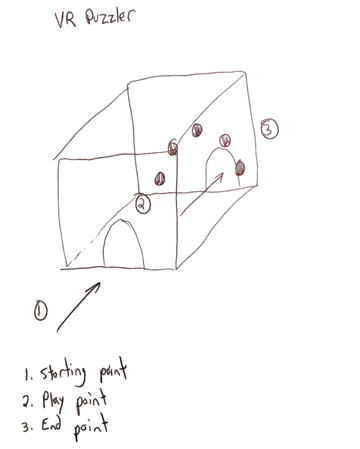 VR Puzzler
③
②
①
1. Starting point
2. Play point
3. End point